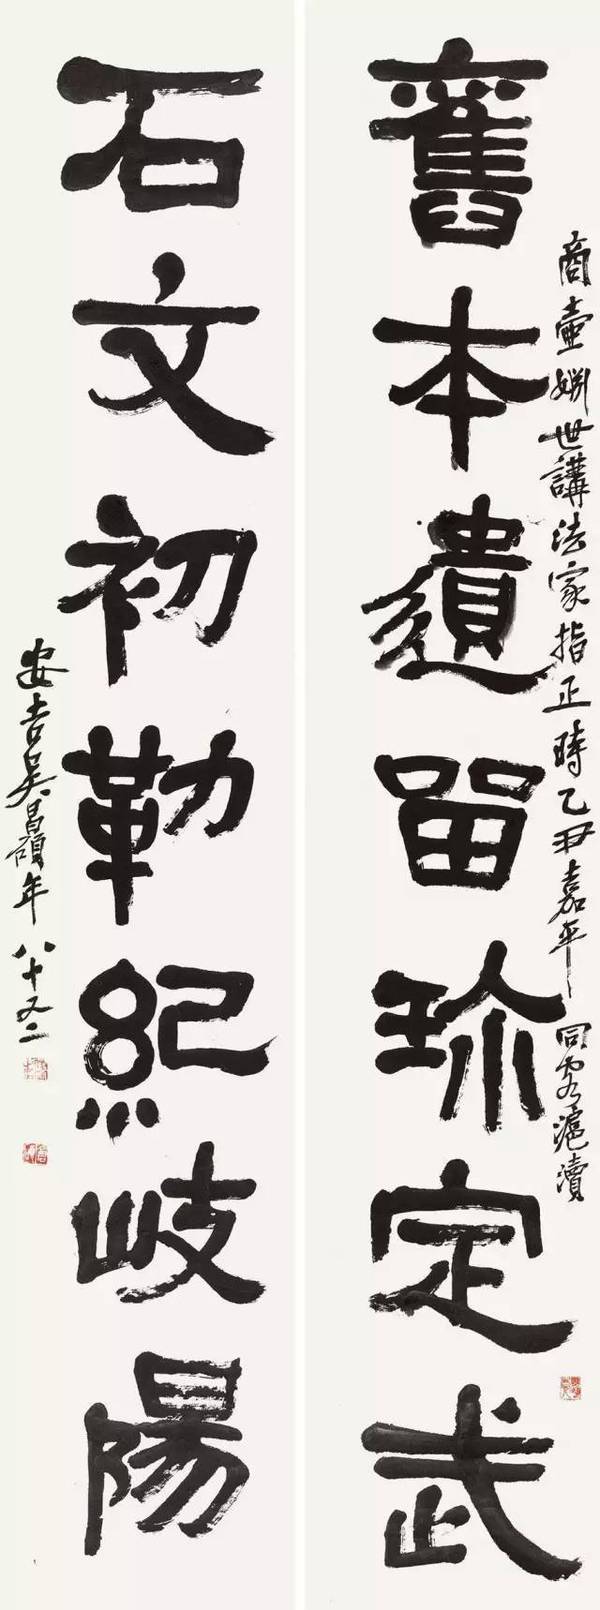 舊本遺留珎定武
商壺姻世講法家指正時乙丑嘉平同客滬瀆
石文初勒紀岐陽
安吉吳昌碩年八十又二